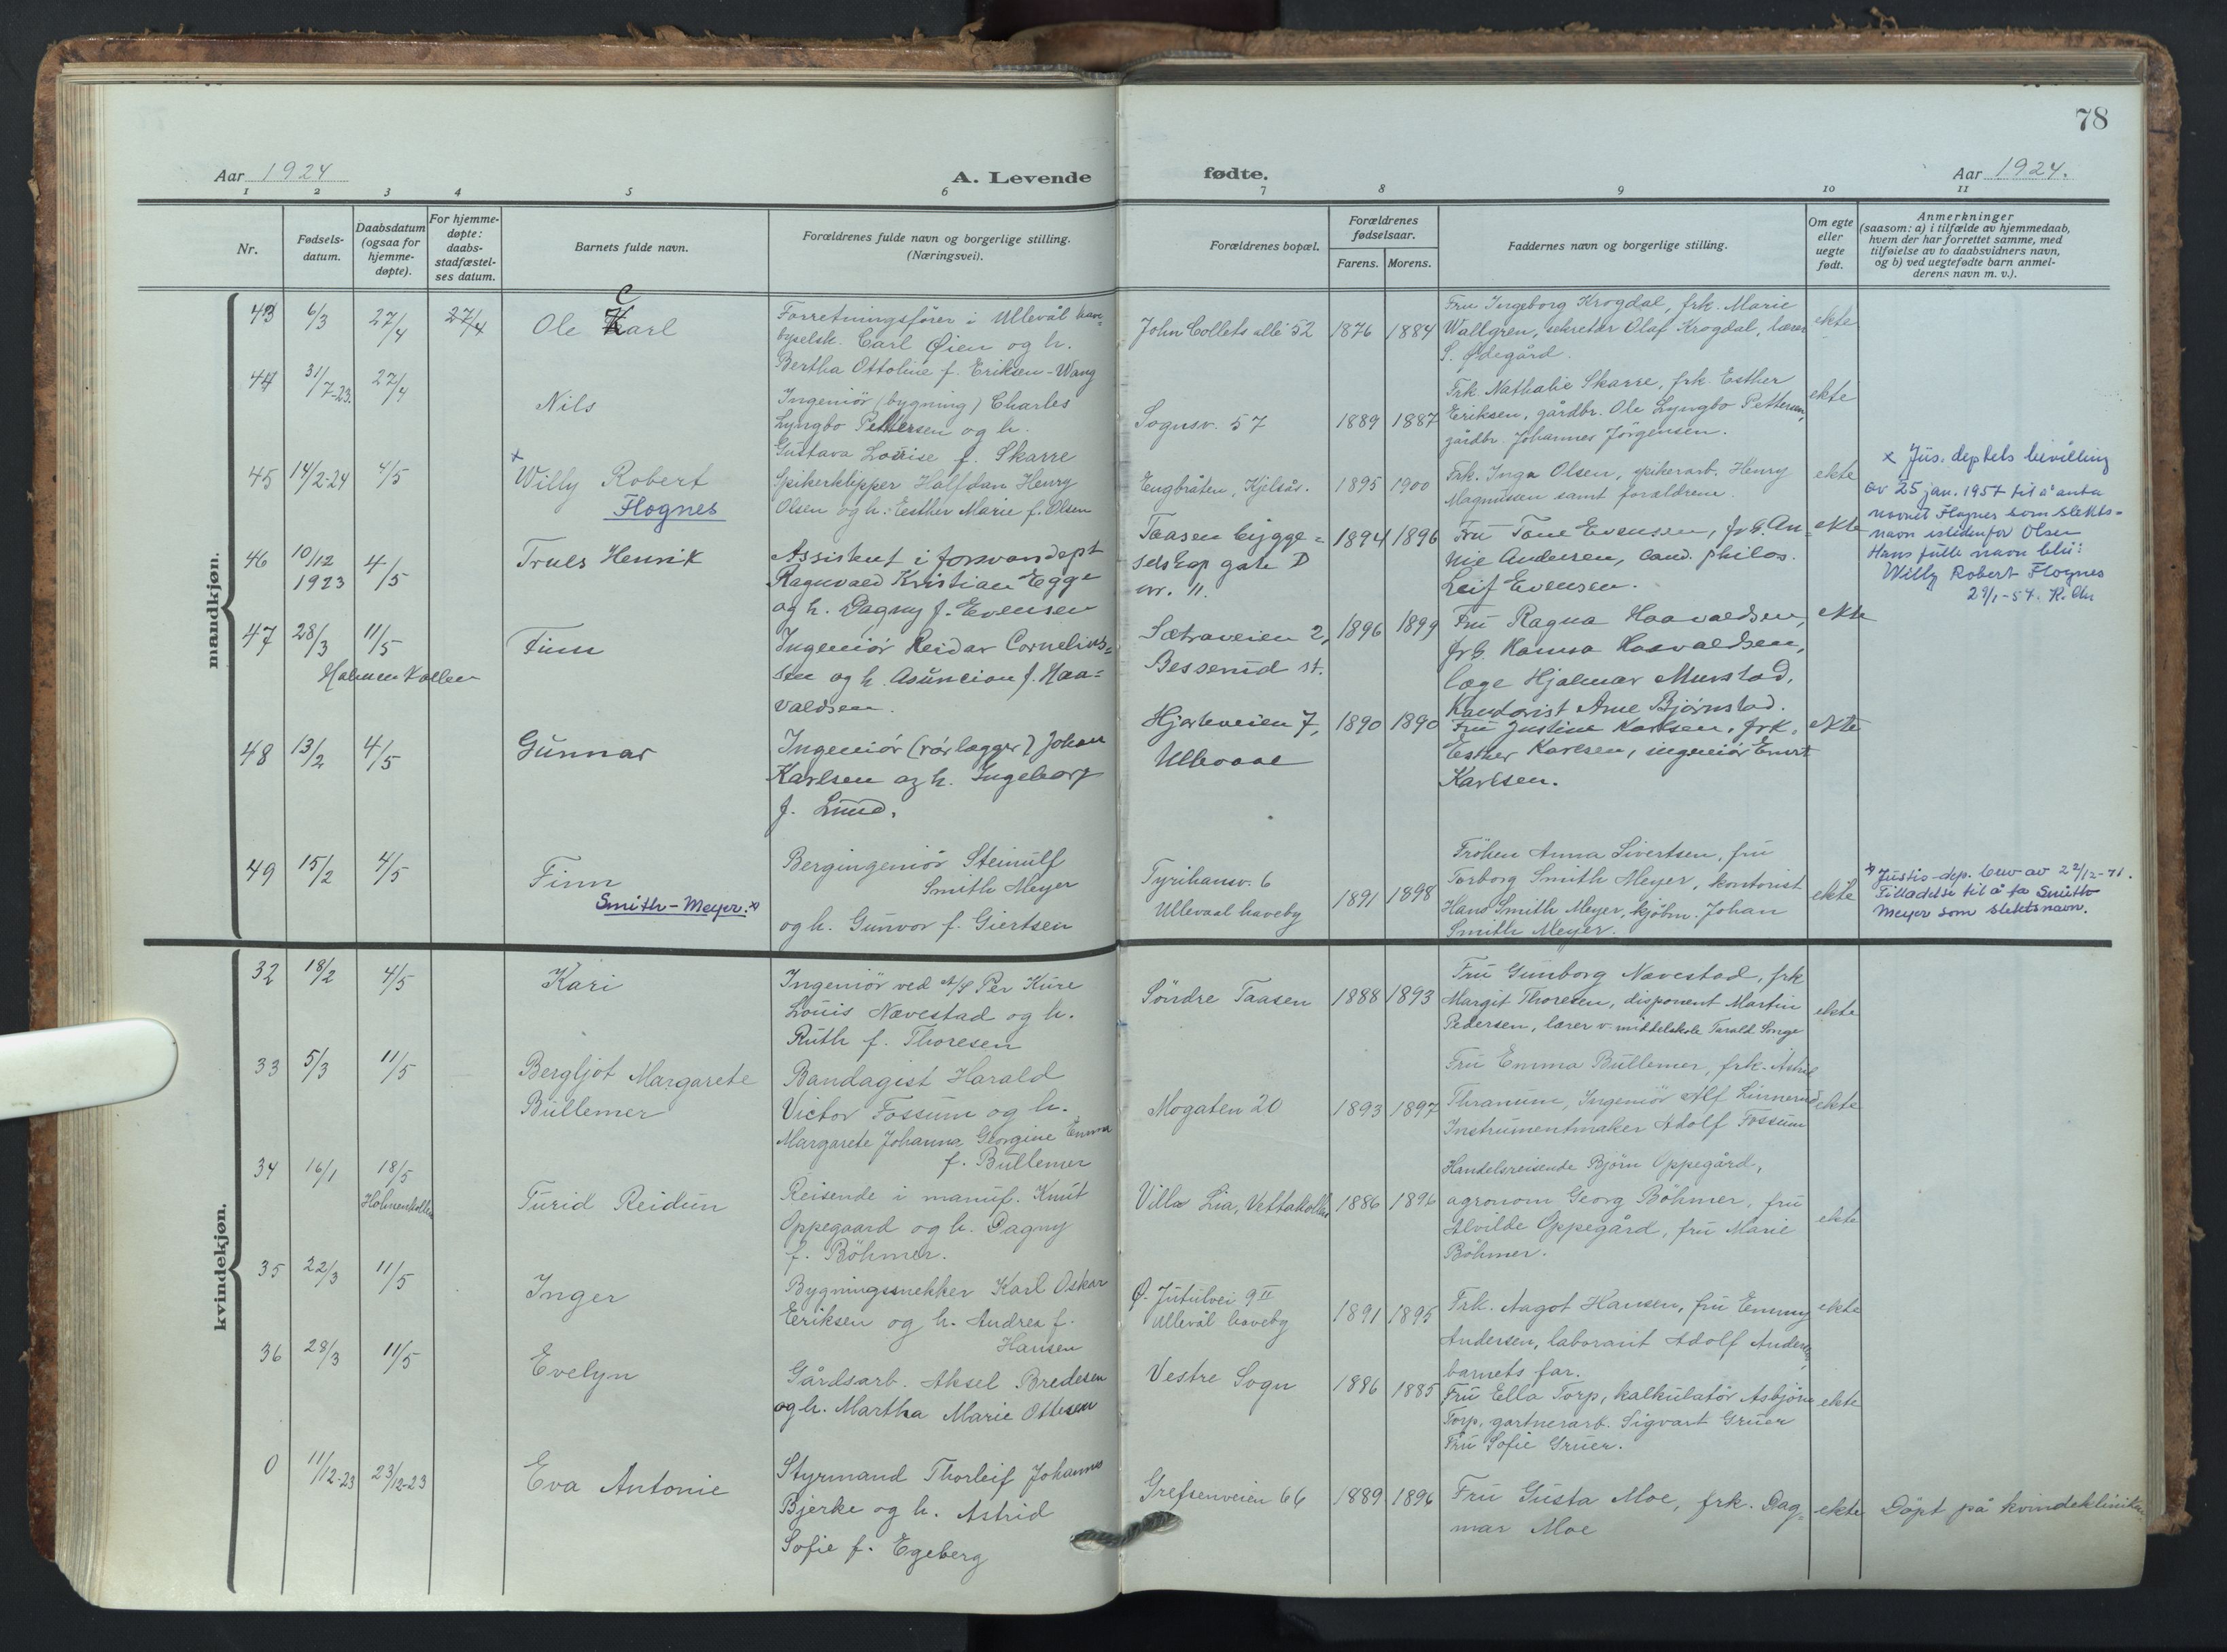 78
Aar 1924
A. Levende
fødte.
Aar 1924.
1 2 3 4 5 6 7 8 9 10 11
Nr.
Fødsels-
datum.
Daabsdatum
(ogsaa for
hjemme-
døpte).
For hjemme-
døpte:
daabs-
stadfæstel-
ses datum.
Barnets fulde navn.
Forældrenes fulde navn og borgerlige stilling.
(Næringsvei).
Forældrenes bopæl.
Forældrenes
fødselsaar.
Farens. Morens.
Faddernes navn og borgerlige stilling.
Om egte
eller
uegte
født.
Anmerkninger
(saasom: a) i tilfælde av hjemmedaab,
hvem der har forrettet samme, med
tilføielse av to daabsvidners navn,
og b) ved uegtefødte barn anmel-
derens navn m. v.).
mandkjøn.
43
6/3
27/4
27/4
Ole Carl
Forretningsfører i Ullevål have-
byselsk. Carl Øien og h.
Bertha Ottoline f. Eriksen-Wang
John Collets allé 52
1876 1884
Fru Ingeborg Krogdal, frk. Marie
Wallgren, sekretær Olaf Krogdal, lærer
S. Ødegård.
ekte
44
31/7-23.
27/4
Nils
Ingeniør (bygning) Charles
Lyngbo Pettersen og h.
Gustava Lovise f. Skarre
Sognsv. 57
1889 1887
Frk. Nathalie Skarre, frk. Esther
Eriksen, gårdbr. Ole Lyngbo Pettersen,
gårdbr. Johannes Jörgensen.
ekte
45
14/2-24
4/5
x
Willy Robert
Flognes
Spikerklipper Halfdan Henry
Olsen og h. Esther Marie f. Olsen
Engbråten, Kjelsås.
1895 1900
Frk. Inga Olsen, spikerarb. Henry
Magnussen samt forældrene.
ekte
x Jus. deptets bevilling
av 25 jan. 1957 til å anta
navnet Flognes som slekts-
navn istedenfor Olsen
Hans fulle navn blir:
Willy Robert Flognes
46
10/12
1923
4/5
Truls Henrik
Assistent i forsvarsdept
Ragnvald Kristian Egge
og h. Dagny f. Evensen
Taasen bygge-
selskap gate D
nr. 11.
1894 1896
Fru Tone Evensen, frk. An-
nie Andersen, cand. philos.
Leif Evensen.
ekte
47
28/3
11/5
Holmenkollen
Finn
Ingeniör Reidar Cornelius-
sen og h. Asuncion f. Haa-
valdsen.
Sætraveien 2,
Besserud st.
1896 1899
Fru Ragna Haavaldsen,
frk. Haavaldsen,
læge Hjalmar Murstad,
Arne Bjørnstad.
ekte
48
13/2
4/5
Gunnar
Ingeniör (rørlægger) Johan
Karlsen og h. Ingeborg
f. Lund.
Hjorteveien 7,
Ullevaal
1890 1890
Fru Justine Karlsen, frk.
Esther Karlsen, ingeniør Einar
Karlsen.
ekte
49
15/2
4/5
Finn
Smith-Meyer. x
Bergingeniør Steinulf
Smith Meyer
og h. Gunvor f. Giertsen
Tyrihansv. 6
Ullevaal haveby
1891 1898
Fröken Anna Sivertsen, fru
Torborg Smith Meyer, kontorist
Hans Smith Meyer, kjøbm. Johan
Smith Meyer.
ekte
x Justis-dep. bev av 22/12-71.
Tilladelse til å ta Smith-
Meyer som slektsnavn.
kvindekjøn.
32
18/2
4/5
Kari
Ingeniör ved A/S Per Kure
Louis Nævestad og h.
Ruth f. Thoresen
Söndre Taasen
1888 1893
Fru Gunborg Nævestad, frk
Margit Thoresen, disponent Martin
Pedersen, lærer v. middelskole Tarald Songe
ekte
33
5/3
11/5
Bergljot Margarete
Bullemer
Bandagist Harald
Victor Fossum og h.
Margarete Johanna Georgine Emma
f. Bullemer
Mogaten 20
1893 1897
Fru Emma Bullemer, frk. Astrid
Thranum, Ingeniör Alf Linnerud
Instrumentmaker Adolf Fossum
ekte
34
16/1
18/5
Holmenkollen
Turid Reidun
Reisende i manuf. Knut
Oppegaard og h. Dagny
f. Böhmer.
Villa Lia, Vettakollen
1886 1896
Handelsreisende Björn Oppegård,
agronom Georg Böhmer, fru
Alvilde Oppegård, fru Marie
Böhmer.
ekte
35
22/3
11/5
Inger
Bygningssnekker Karl Oskar
Eriksen og h. Andrea f.
Hansen
Ø. Jutulvei 9 II
Ullevål haveby
1891 1895
Frk. Aagot Hansen, fru Emmy
Andersen, laborant Adolf Andersen,
barnets far.
ekte
36
28/3
11/5
Evelyn
Gårdsarb. Aksel Bredesen
og h. Martha Marie Ottesen
Vestre Sogn
1886 1885
Fru Ella Torp, kalkulatör Asbjörn
Torp, gartnerarb. Sigvart Gruer
Fru Sofie Gruer.
ekte
0
11/12-23
23/12-23
Eva Antonie
Styrmand Thorleif Johannes
Bjerke og h. Astrid
Sofie f. Egeberg
Grefsenveien 66
1889 1896
Fru Gusta Moe, frk. Dag-
mar Moe
ekte
Döpt på kvindeklinikken